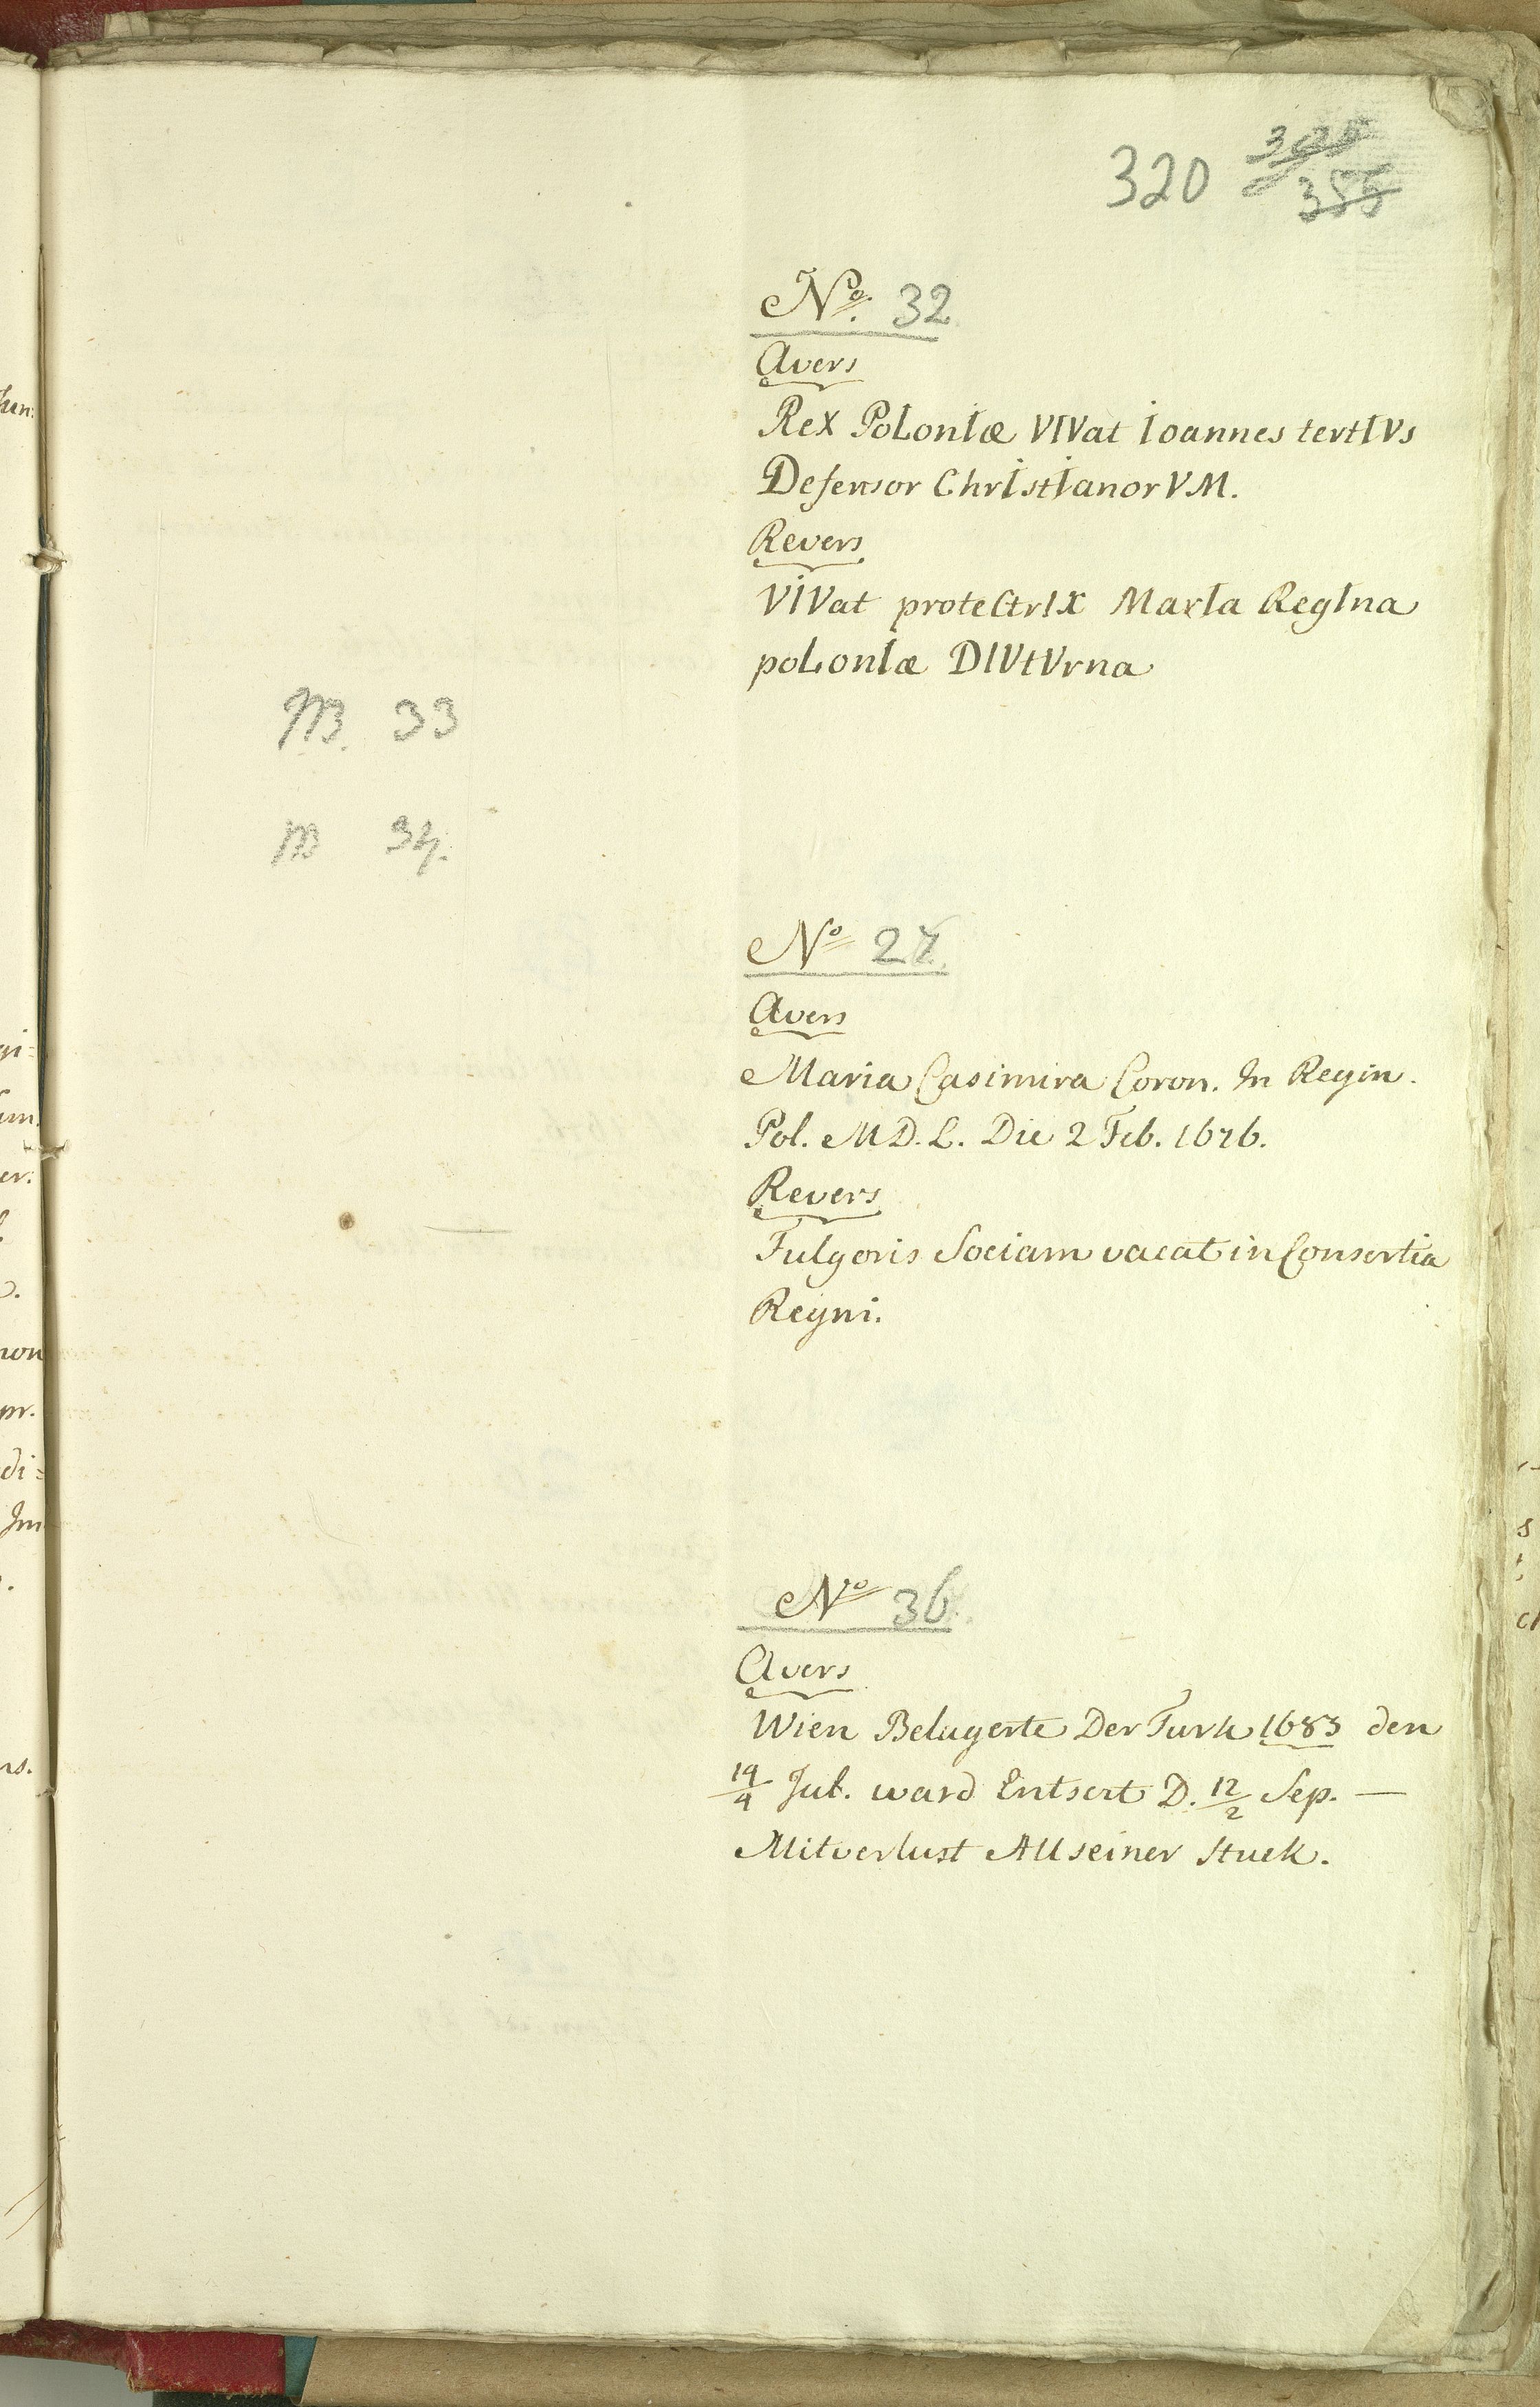 320
355
No. 32
Avers
ReX PoLonIæ VIVat Ioannes tertIVs
Defensor ChrIstIanorVM.
Revers
VIVat proteCtrIX MarIa RegIna
poLonIæ DIVtVrna
33
34.
No 27.
Avers
Maria Casimira Coron. In Regin.
Pol. M D. L. Die 2 Feb. 1676.
Revers
Fulgoris Sociam vacat in Consortia
Regni.
No 36.
Avers
Wien Belagerte Der Turk 1683 den
14/4 Jul. ward Entsert D. 12/2 Sep. —
Mitverlust All seiner Stuck.